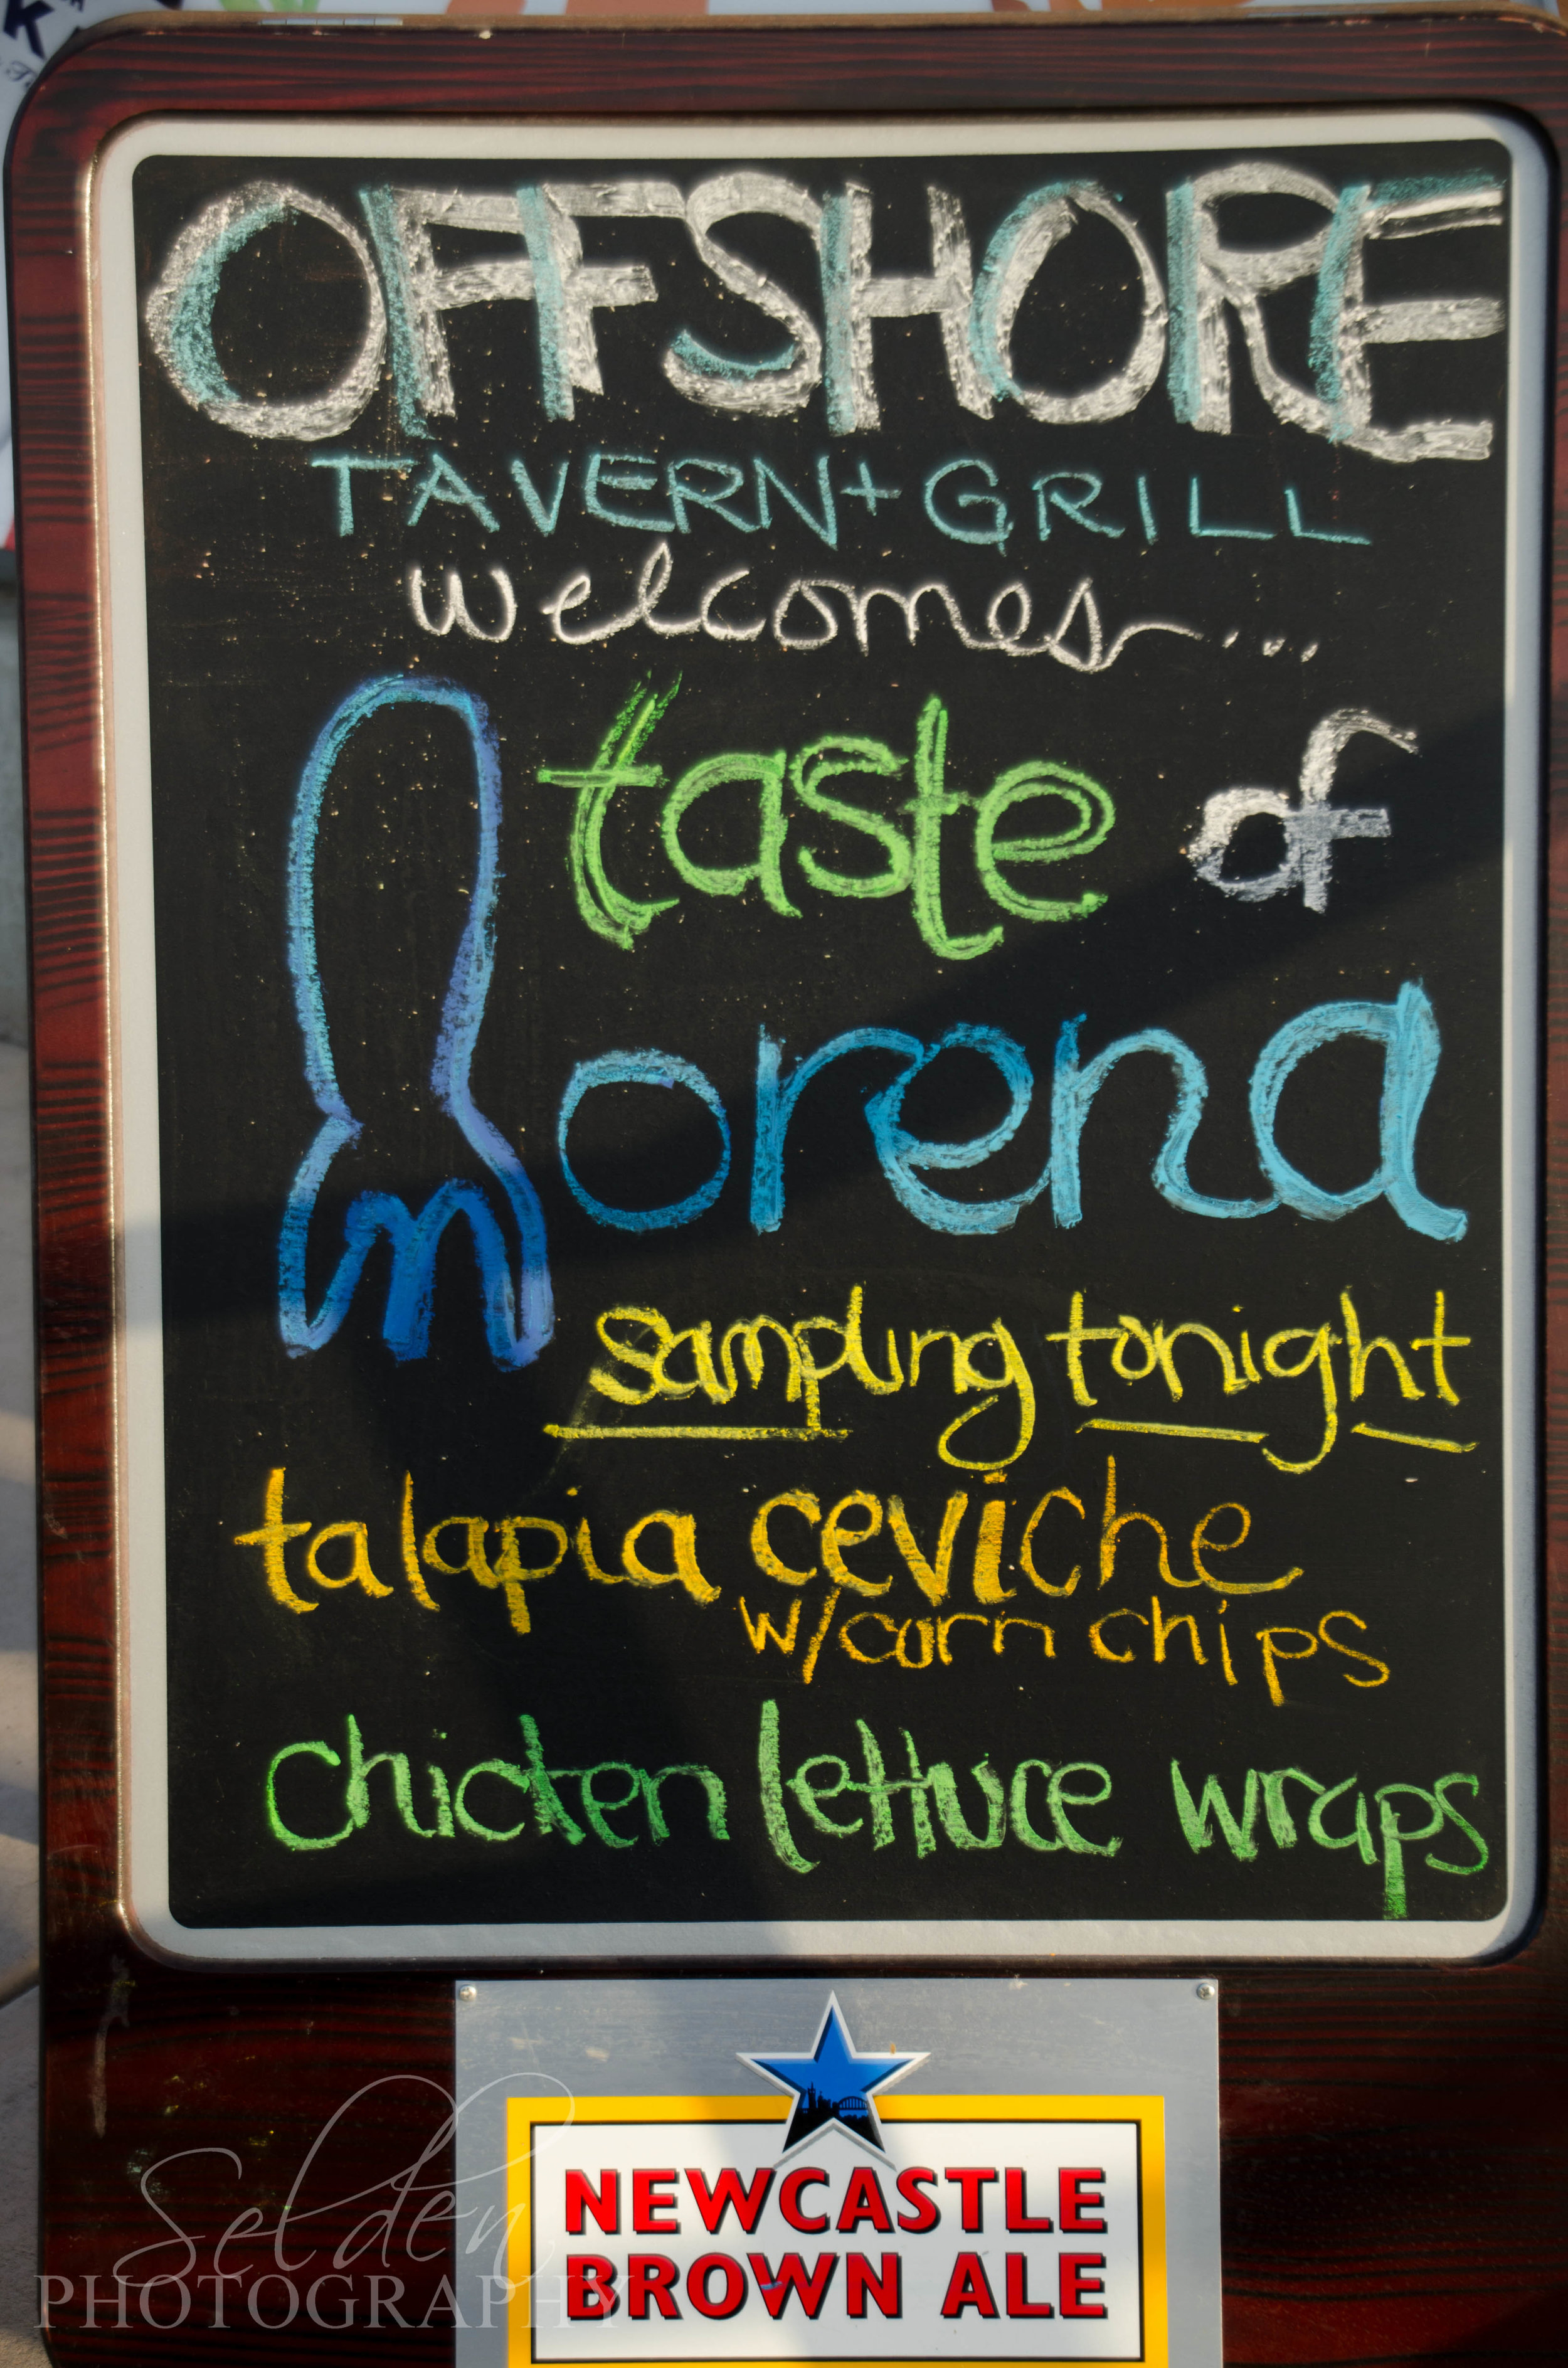 OFFSHORE
TAVERN + GRILL
welcomes...
taste of
Morena
sampling tonight
talapia ceviche
w/corn chips
chicken lettuce wraps
NEWCASTLE
BROWN ALE
Selden
PHOTOGRAPHY